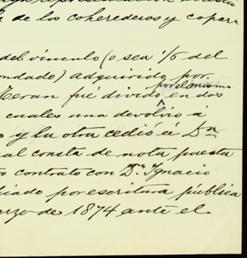 de los coherederos y copar
del vínculo (o sea 1/6 del
ondado) adquirido por
por el mismo
Teran fué divido en dos
cuales una devolvió á
o y la otra cedió á Dª
al consta de nota puesta
o contrato con Dn Ignacio
icado por escritura pública
arzo de 1874 ante el